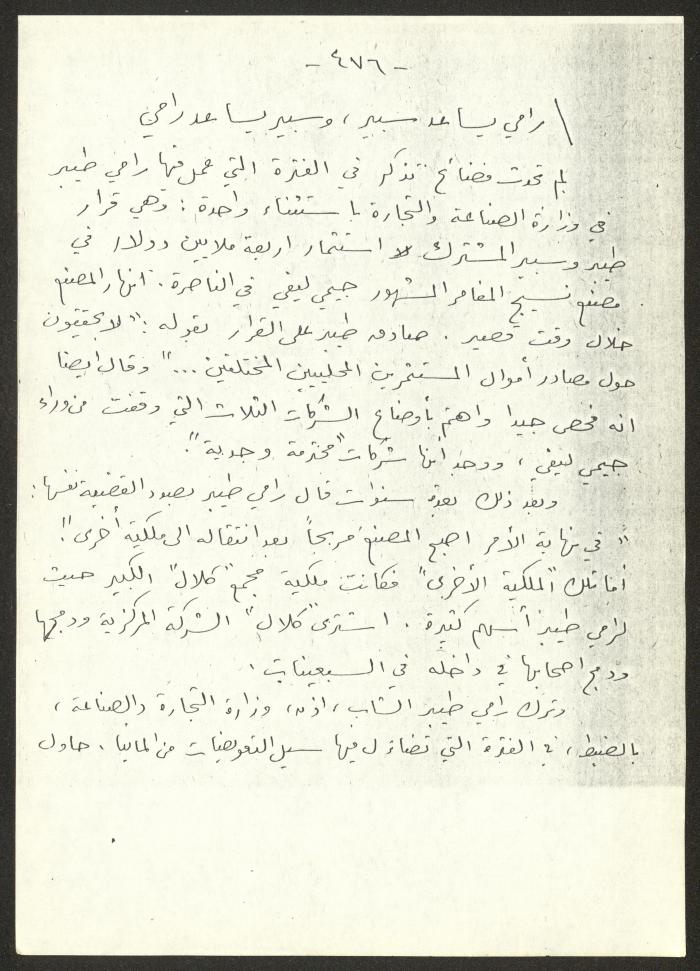 - ٤٧٦ -
رامي يساعد سبير، وسبير يساعد رامي
لم تحدث فضائح تذكر في الفترة التي عمل فيها رامي طيبر
في وزارة الصناعة والتجارة باستثناء واحدة : وهي قرار
طيبر وسبير المشترك استثمار اربعة ملايين دولار في
مصنع نسيج المغامر المشهور جيمي ليفي في الناصرة. انهار المصنع
خلال وقت قصير. صادق طيبر على القرار بقوله : "لا يحققون
حول مصادر أموال المستثمرين المحليين المختلفين ..." وقال ايضا
انه فحص جيدا واهتم بأوضاع الشركات الثلاث التي وقفت من وراء
جيمي ليفي، ووجد أنها شركات "محترمة وجدية".
وبعد ذلك بعدة سنوات قال رامي طيبر بصدد القضية نفسها:
"في نهاية الأمر اصبح المصنع مربحاً بعد انتقاله الى ملكية أخرى"!
أما تلك "الملكية الأخرى" فكانت ملكية مجمع "كلال" الكبير حيث
لرامي طيبر أسهم كثيرة. اشترى "كلال" الشركة المركزية ودمجها
ودمج اصحابها في داخله في السبعينات.
وترك رامي طيبر الشاب، اذن، وزارة التجارة والصناعة،
بالضبط، في الفترة التي تضاءل فيها سيل التعويضات من المانيا. حاول